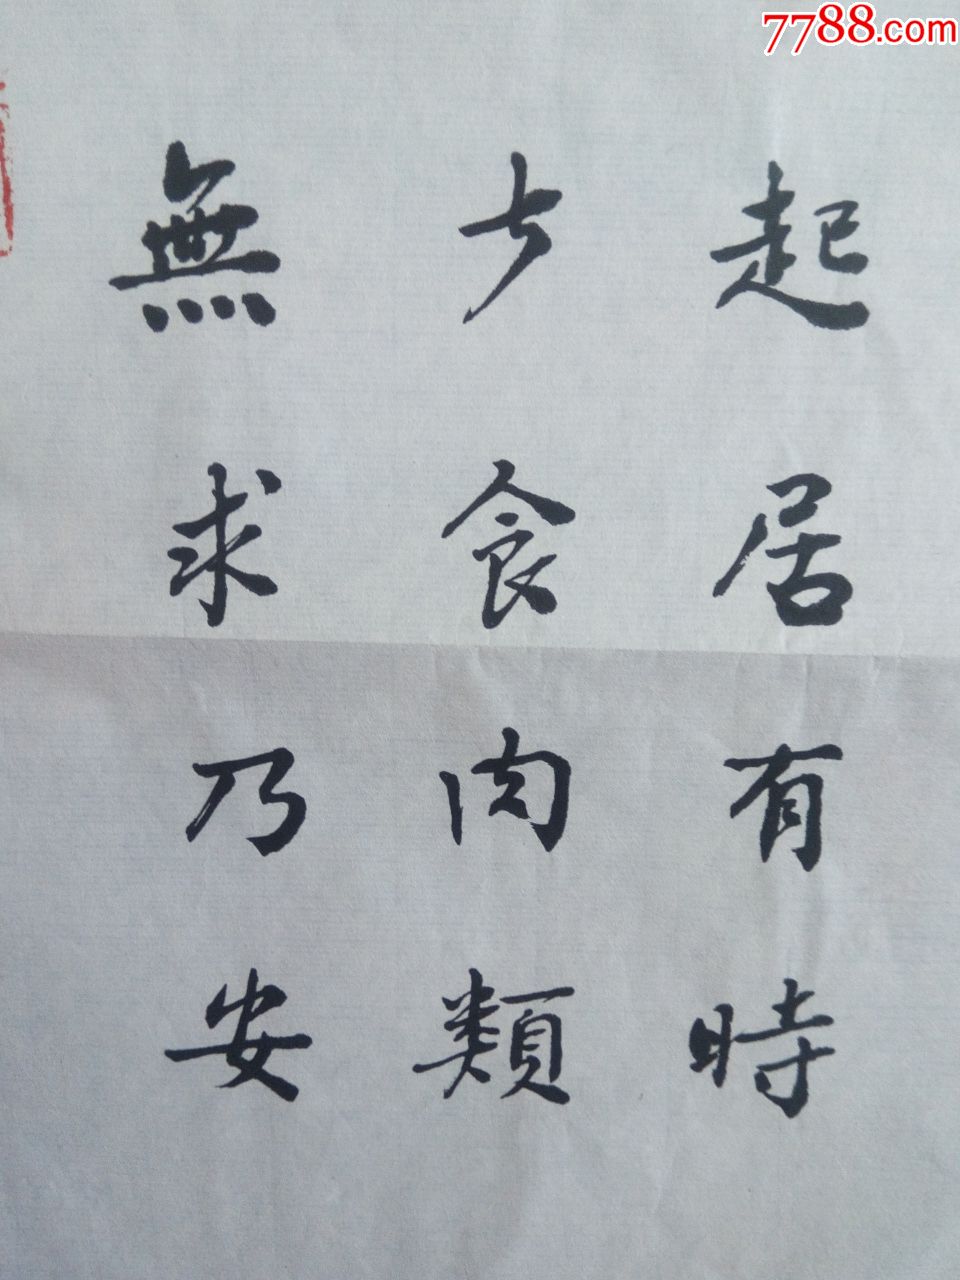 起居有時
少食肉類
無求乃安
7788.com